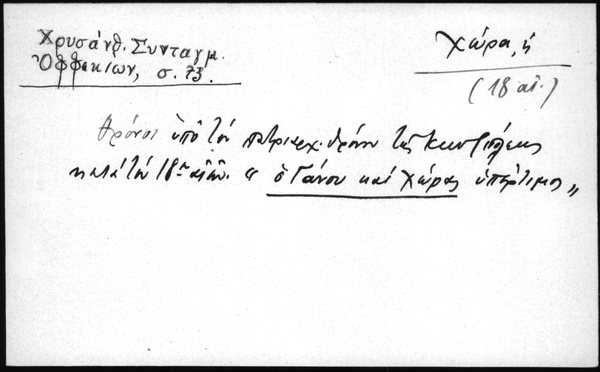 Χρυσάνθ. Συνταγμ.
Ὀφφικίων, σ. 73.
Χώρα, ἡ
(18 αἰ.)
Θρόνοι ὑπὸ τὸν πατριαρχ. θρόνον τῆς Κωνσ/πόλεως
κατὰ τὸν 18ον αἰῶν. " ὁ Γάνου καὶ Χώρας ὑπέρτιμος "